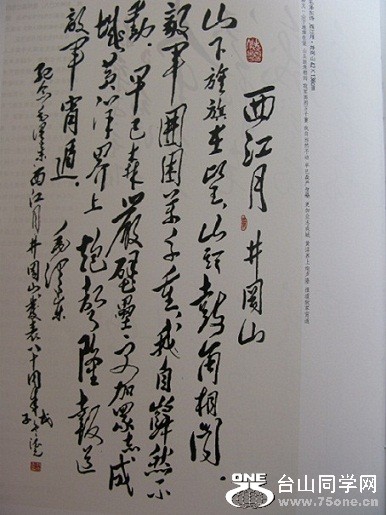 西江月 井冈山
山下旌旗在望，山头鼓角相闻。
敌军围困万千重，我自岿然不
动。早已森严壁垒，更加众志成
城。黄洋界上炮声隆，报道
敌军宵遁。
毛泽东
纪念毛泽东西江月井冈山发表八十周年
ONE
台山同学网
www.75one.cn